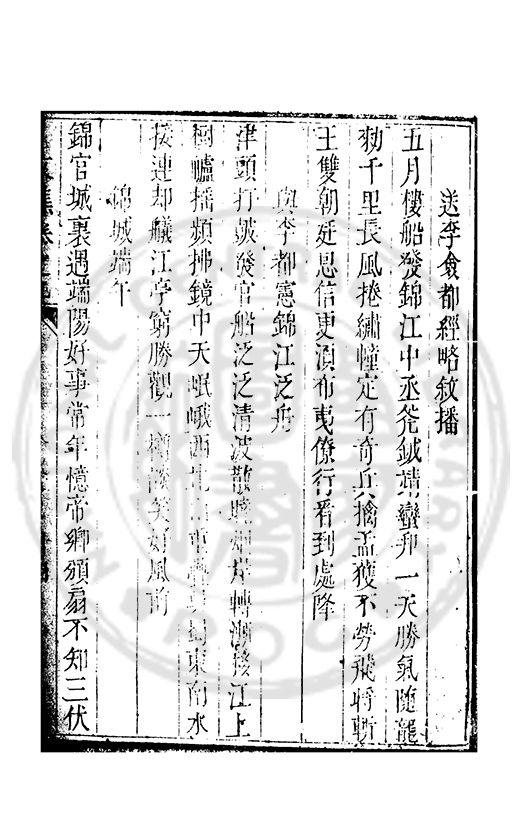 送李僉都經略敘播
五月樓船發錦江中丞斧鉞靖蠻邦一天勝氣隨龍
劒千里長風捲繡幢定有奇兵擒孟獲不勞飛將斬
王雙朝廷恩信更湏布夷僚行看到處降
與李都憲錦江泛舟
津頭打皷發官船泛泛清波散曉烟岸轉漸
江上
樹艫摇頻拂鏡中天岷峨西
東南水
接連却艤江亭窮勝觀一樽談笑好風前
錦城端午
錦官城裏遇端陽好事常年憶帝鄉頒扇不知三伏